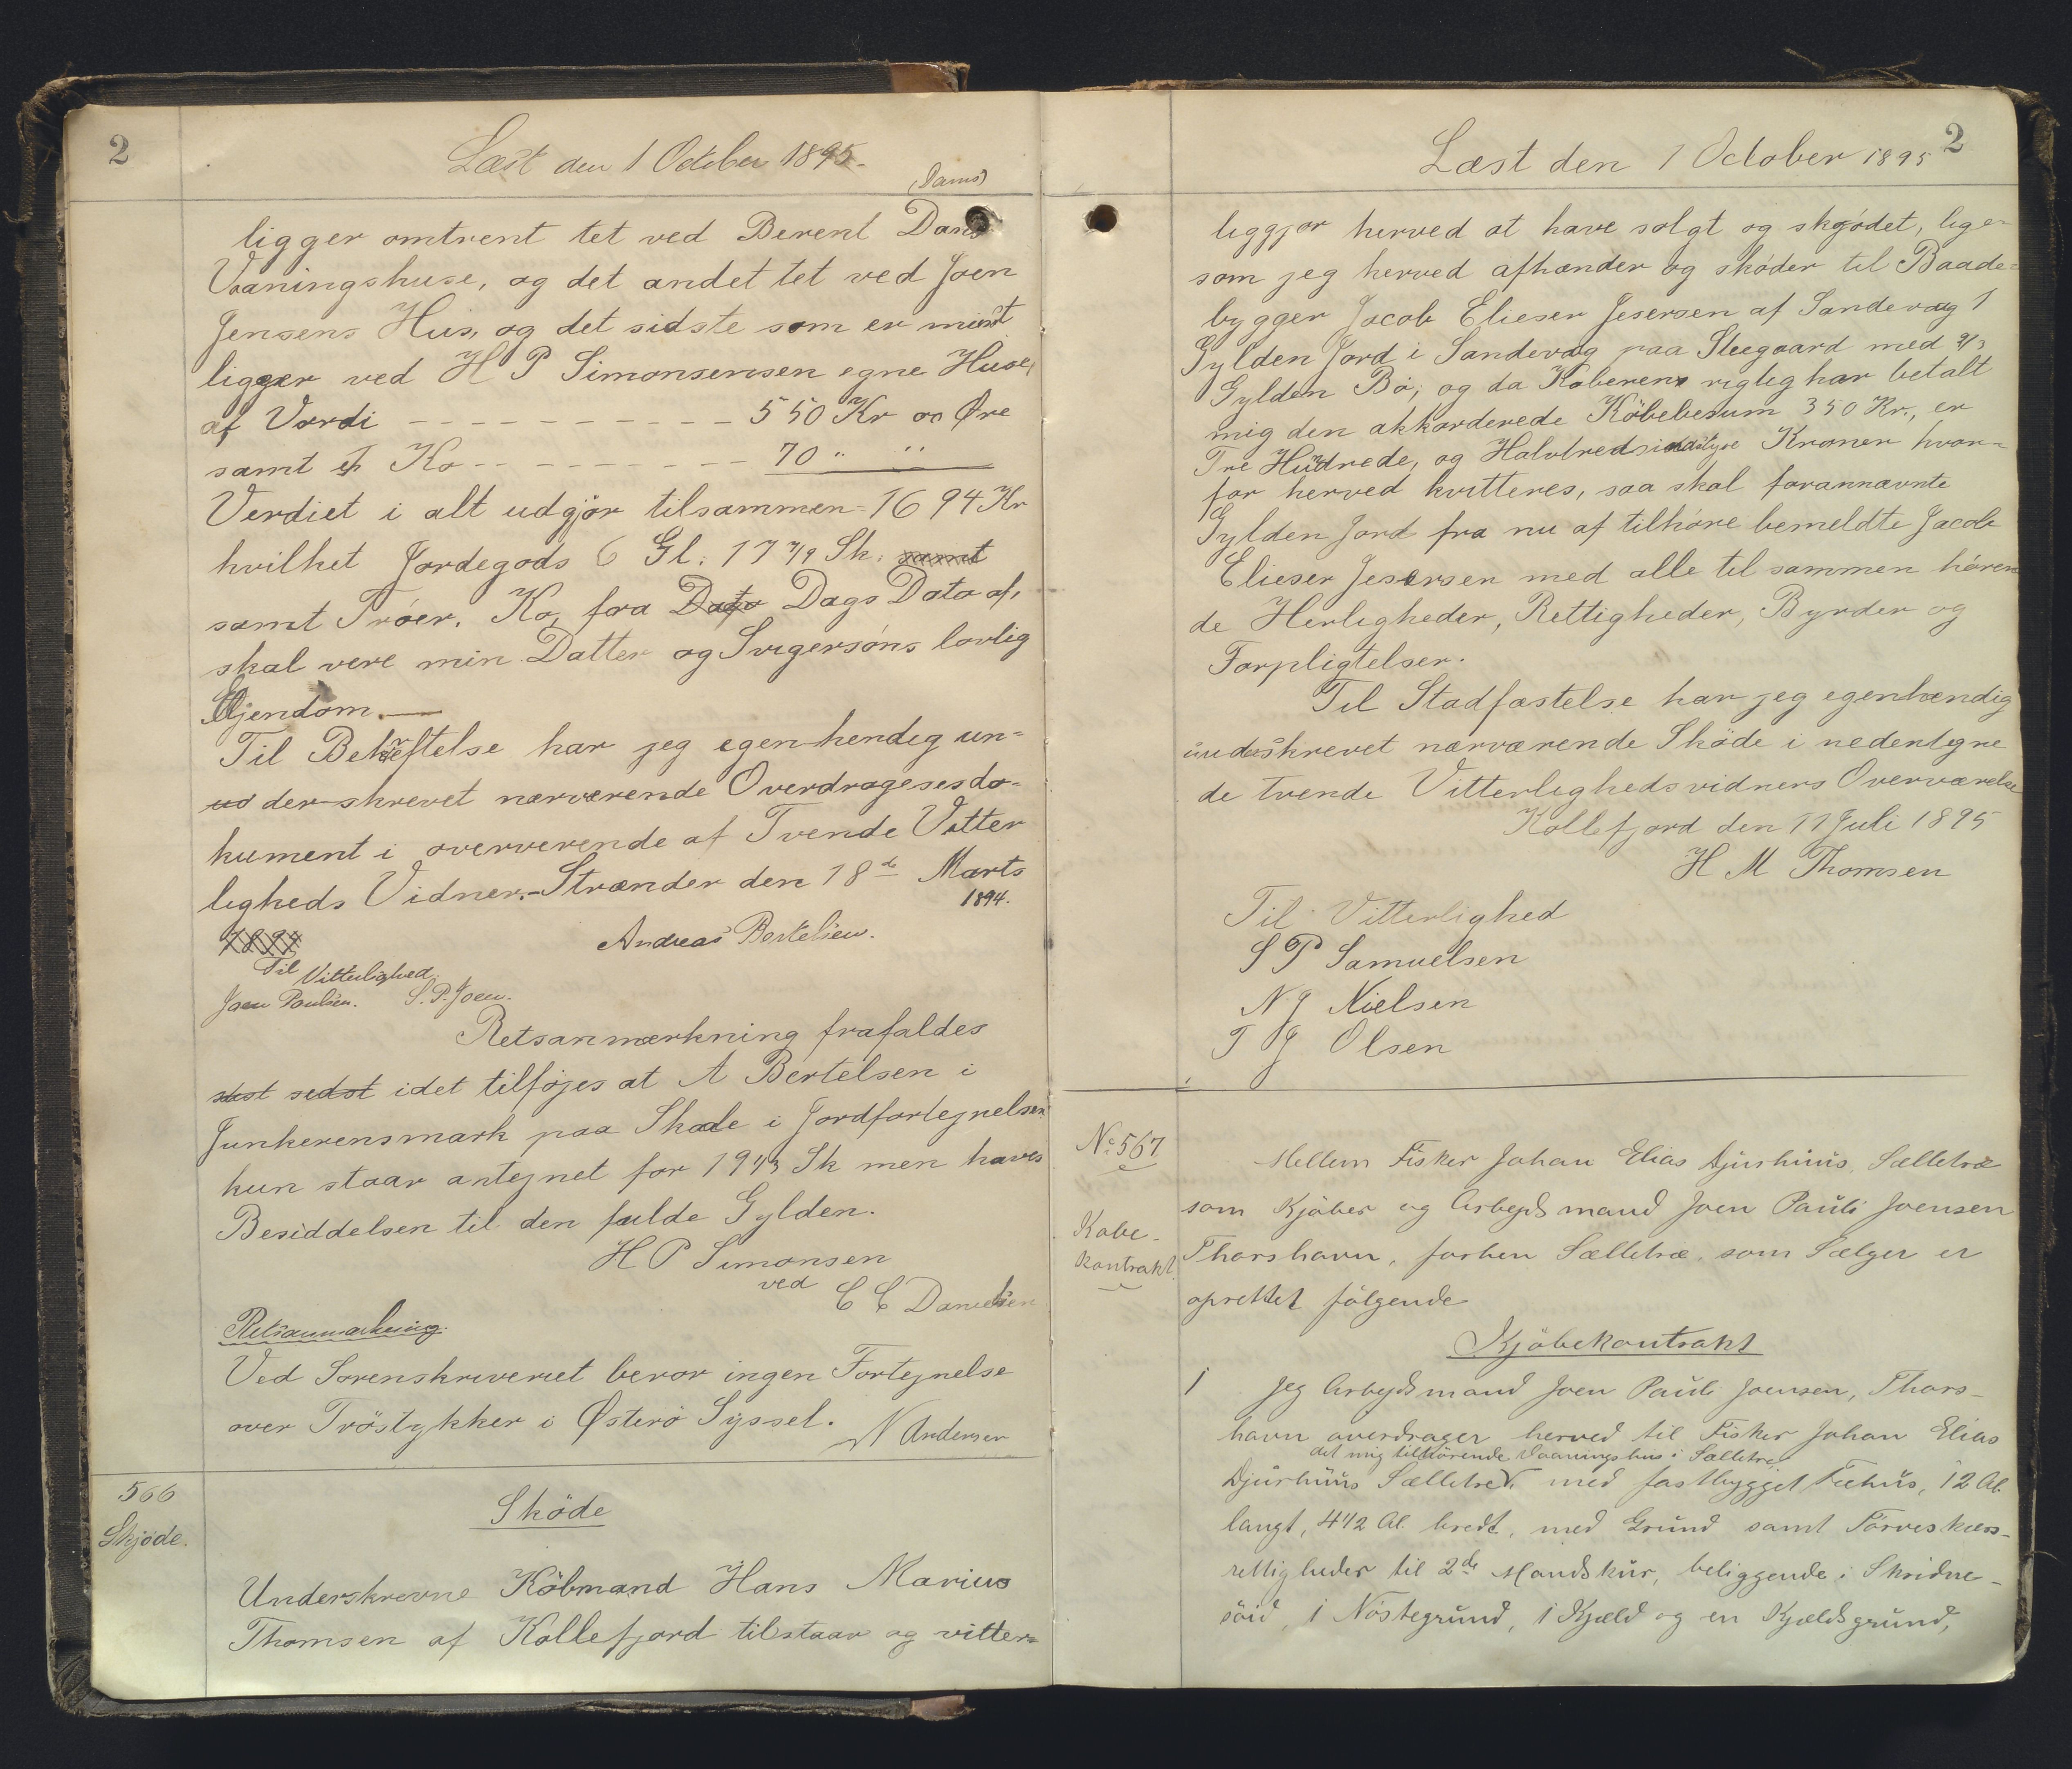 2
Læst den 1 October 1895-
(Dams)
ligger omtrent tet ved Berent Dams
Vaaningshuse, og det andet tet ved Joen
Jensens Hus, og det sidste som er minst
ligger ved H P Simonsensen egne Huse,
af Værdi ----------- 550 Kr 00 Øre
samt Ko --------- 70 " "
Verdiet i alt udgjör tilsammen = 1694 Kr
hvilket Jordegods 6 Gl: 17 7/9 Sk: samt
samt Tröer, Ko, fra Dato Dags Dato af,
skal vere min Datter og Svigersöns lovlig
Ejendom. —
Til Bekræftelse har jeg egenhendig un=
der skrevet nærværende Overdragesesdo-
kument i oververende af Tvende Vitter
ligheds Vidner. - Strænder den 18de Marts
1894.
1894
Andreas Bertelsen.
Til Vitterlighed.
Joen Poulsen. S. P. Joen.
Retsanmærkning frafaldes
sidst idet tilföjes at A Bertelsen i
Junkerensmark paa Skaale i Jordfortejnelsen
kun staar antejnet for 19 1/3 Sk men haves
Besiddelsen til den fulde Gylden.
H P Simonsen
ved
C C Danielsen
Retsanmærkning.
Ved Sorenskriveriet beror ingen Fortejnelse
over Tröstykker i Østerö Syssel.
N Andersen
566
Skjöde.
Sköde
Underskrevne Köbmand Hans Marius
Thomsen af Kollefjord tilstaar og vitter=
2
Læst den 1 October 1895
liggjor herved at have solgt og skjödet, lige=
som jeg herved afhænder og sköder til Baade=
bygger Jacob Elieser Jesersen af Sandevag 1
Gylden Jord i Sandevag paa Steegaard med 2/3
Gylden Bö, og da Köberen rigtig har betalt
mig den akkorderede Köbebesum 350 Kr., er
Tre Hundrede, og Halvtredsindstyve Kroner hvor=
for herved kvitteres, saa skal forannævnte
Gylden Jord fra nu af tilhöre bemeldte Jacob
Elieser Jesersen med alle til sammen hören
de Herligheder, Rettigheder, Byrder og
Forpligtelser.
Til Stadfæstelse har jeg egenhændig
underskrevet nærværende Sköde i nedentegne
de tvende Vitterlighedsvidners Overværelse
Kollefjord den 11 Juli 1895
H M Thomsen
Til Vitterlighed
S P Samuelsen
N J Nielsen
T J Olsen
No 567
Köbe-
kontrakt
Mellem Fisker Johan Elias Djurhuus, Sælletræ
som Kjöber og Arbejdsmand Joen Pauli Joensen
Thorshavn, forhen Sælletræ, som Sælger er
oprettet fölgende
Kjöbekontrakt
1 Jeg Arbejdsmand Joen Pauli Joensen, Thors-
havn overdrager herved til Fisker Johan Elias
det mig tilhörende Vaaningshus i Sælletræ,
Djurhuus Sælletræ med fastbygget Fæhus, 12 Al.
langt, 4 1/2 Al. bredt, med Grund samt Törveskærs-
rettigheder til 2de Mandskur, beliggende i Skridne-
söid, 1 Nöstegrund, 1 Kjæld og en Kjældsgrund,